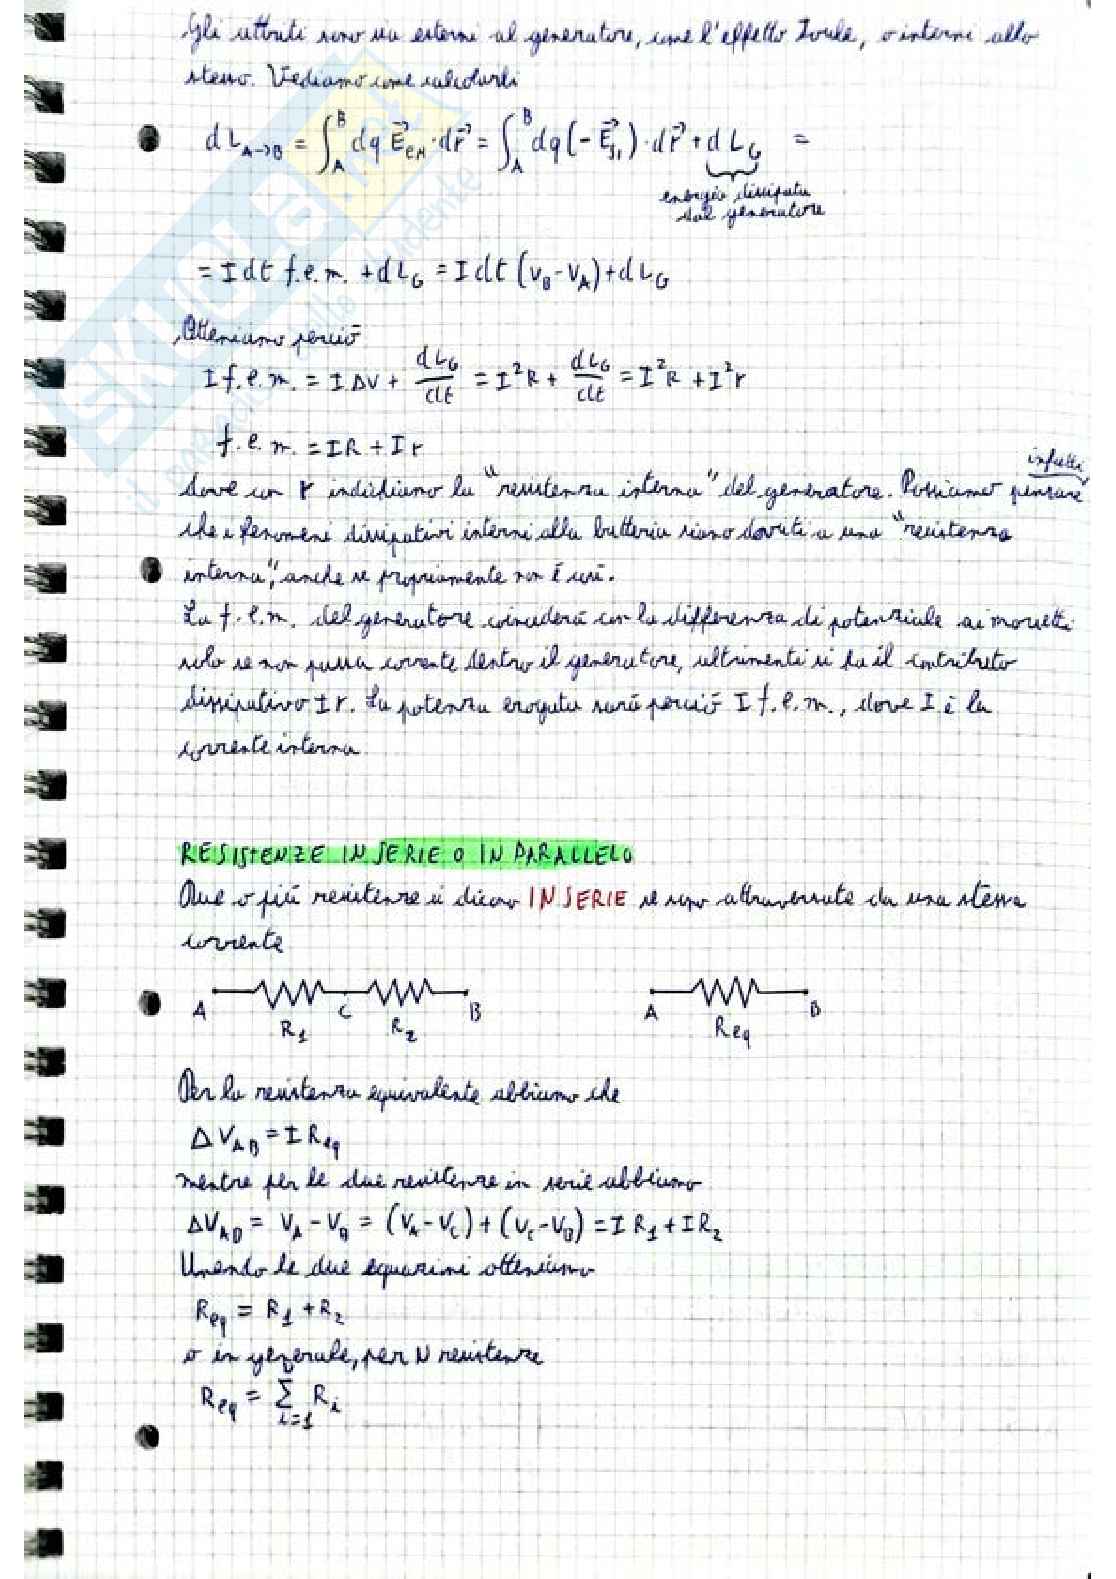 Gli attriti sono sia esterni al generatore, come l'effetto Joule, o interni allo
stesso. Vediamo come calcolarli
dL_{A→B} = ∫_A^B dq E⃗_{em} · dr⃗ = ∫_A^B dq (-E⃗_{s}) · dr⃗ + dL_G =
energia dissipata
dal generatore
= I dt f.e.m. + dL_G = I dt (V_B - V_A) + dL_G
Otteniamo perciò
I f.e.m. = I ΔV + dL_G/dt = I²R + dL_G/dt = I²R + I²r
f.e.m. = IR + Ir
infatti
dove con r indichiamo la "resistenza interna" del generatore. Possiamo pensare
che i fenomeni dissipativi interni alla batteria siano dovuti a una "resistenza
interna", anche se propriamente non è così.
La f.e.m. del generatore coinciderà con la differenza di potenziale ai morsetti
solo se non passa corrente dentro il generatore, altrimenti si ha il contributo
dissipativo Ir. La potenza erogata sarà perciò I f.e.m., dove I è la
corrente interna.
RESISTENZE IN SERIE O IN PARALLELO
Due o più resistenze si dicono IN SERIE se sono attraversate da una stessa
corrente
A R_1 C R_2 B A R_eq B
Per la resistenza equivalente abbiamo che
ΔV_{AB} = I R_eq
mentre per le due resistenze in serie abbiamo
ΔV_{AB} = V_A - V_B = (V_A - V_C) + (V_C - V_B) = I R_1 + I R_2
Unendo le due equazioni otteniamo
R_eq = R_1 + R_2
o in generale, per N resistenze
R_eq = Σ_{i=1} R_i
SKUOLA.net
il paradiso dello studente